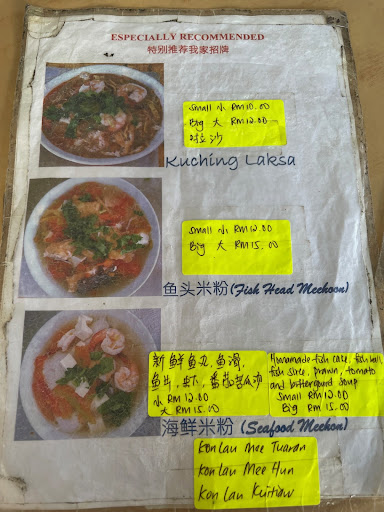 ESPECIALLY RECOMMENDED
特别推荐我家招牌
Small 小 RM 10.00
Big 大 RM 12.00
叻沙
Kuching Laksa
Small 小 RM 12.00
Big 大 RM 15.00
鱼头米粉 (Fish Head Meehoon)
新鲜鱼丸,鱼滑,
鱼片,虾,番茄苦瓜汤
小 RM 12.00
大 RM 15.00
Homemade fish cake, fish ball,
fish slice, prawn, tomato
and bittergourd soup
Small RM 12.00
Big RM 15.00
海鲜米粉 (Seafood Meehon)
Kon Lau Mee Tuaran
Kon Lau Mee Hun
Kon Lau Kuitiaw